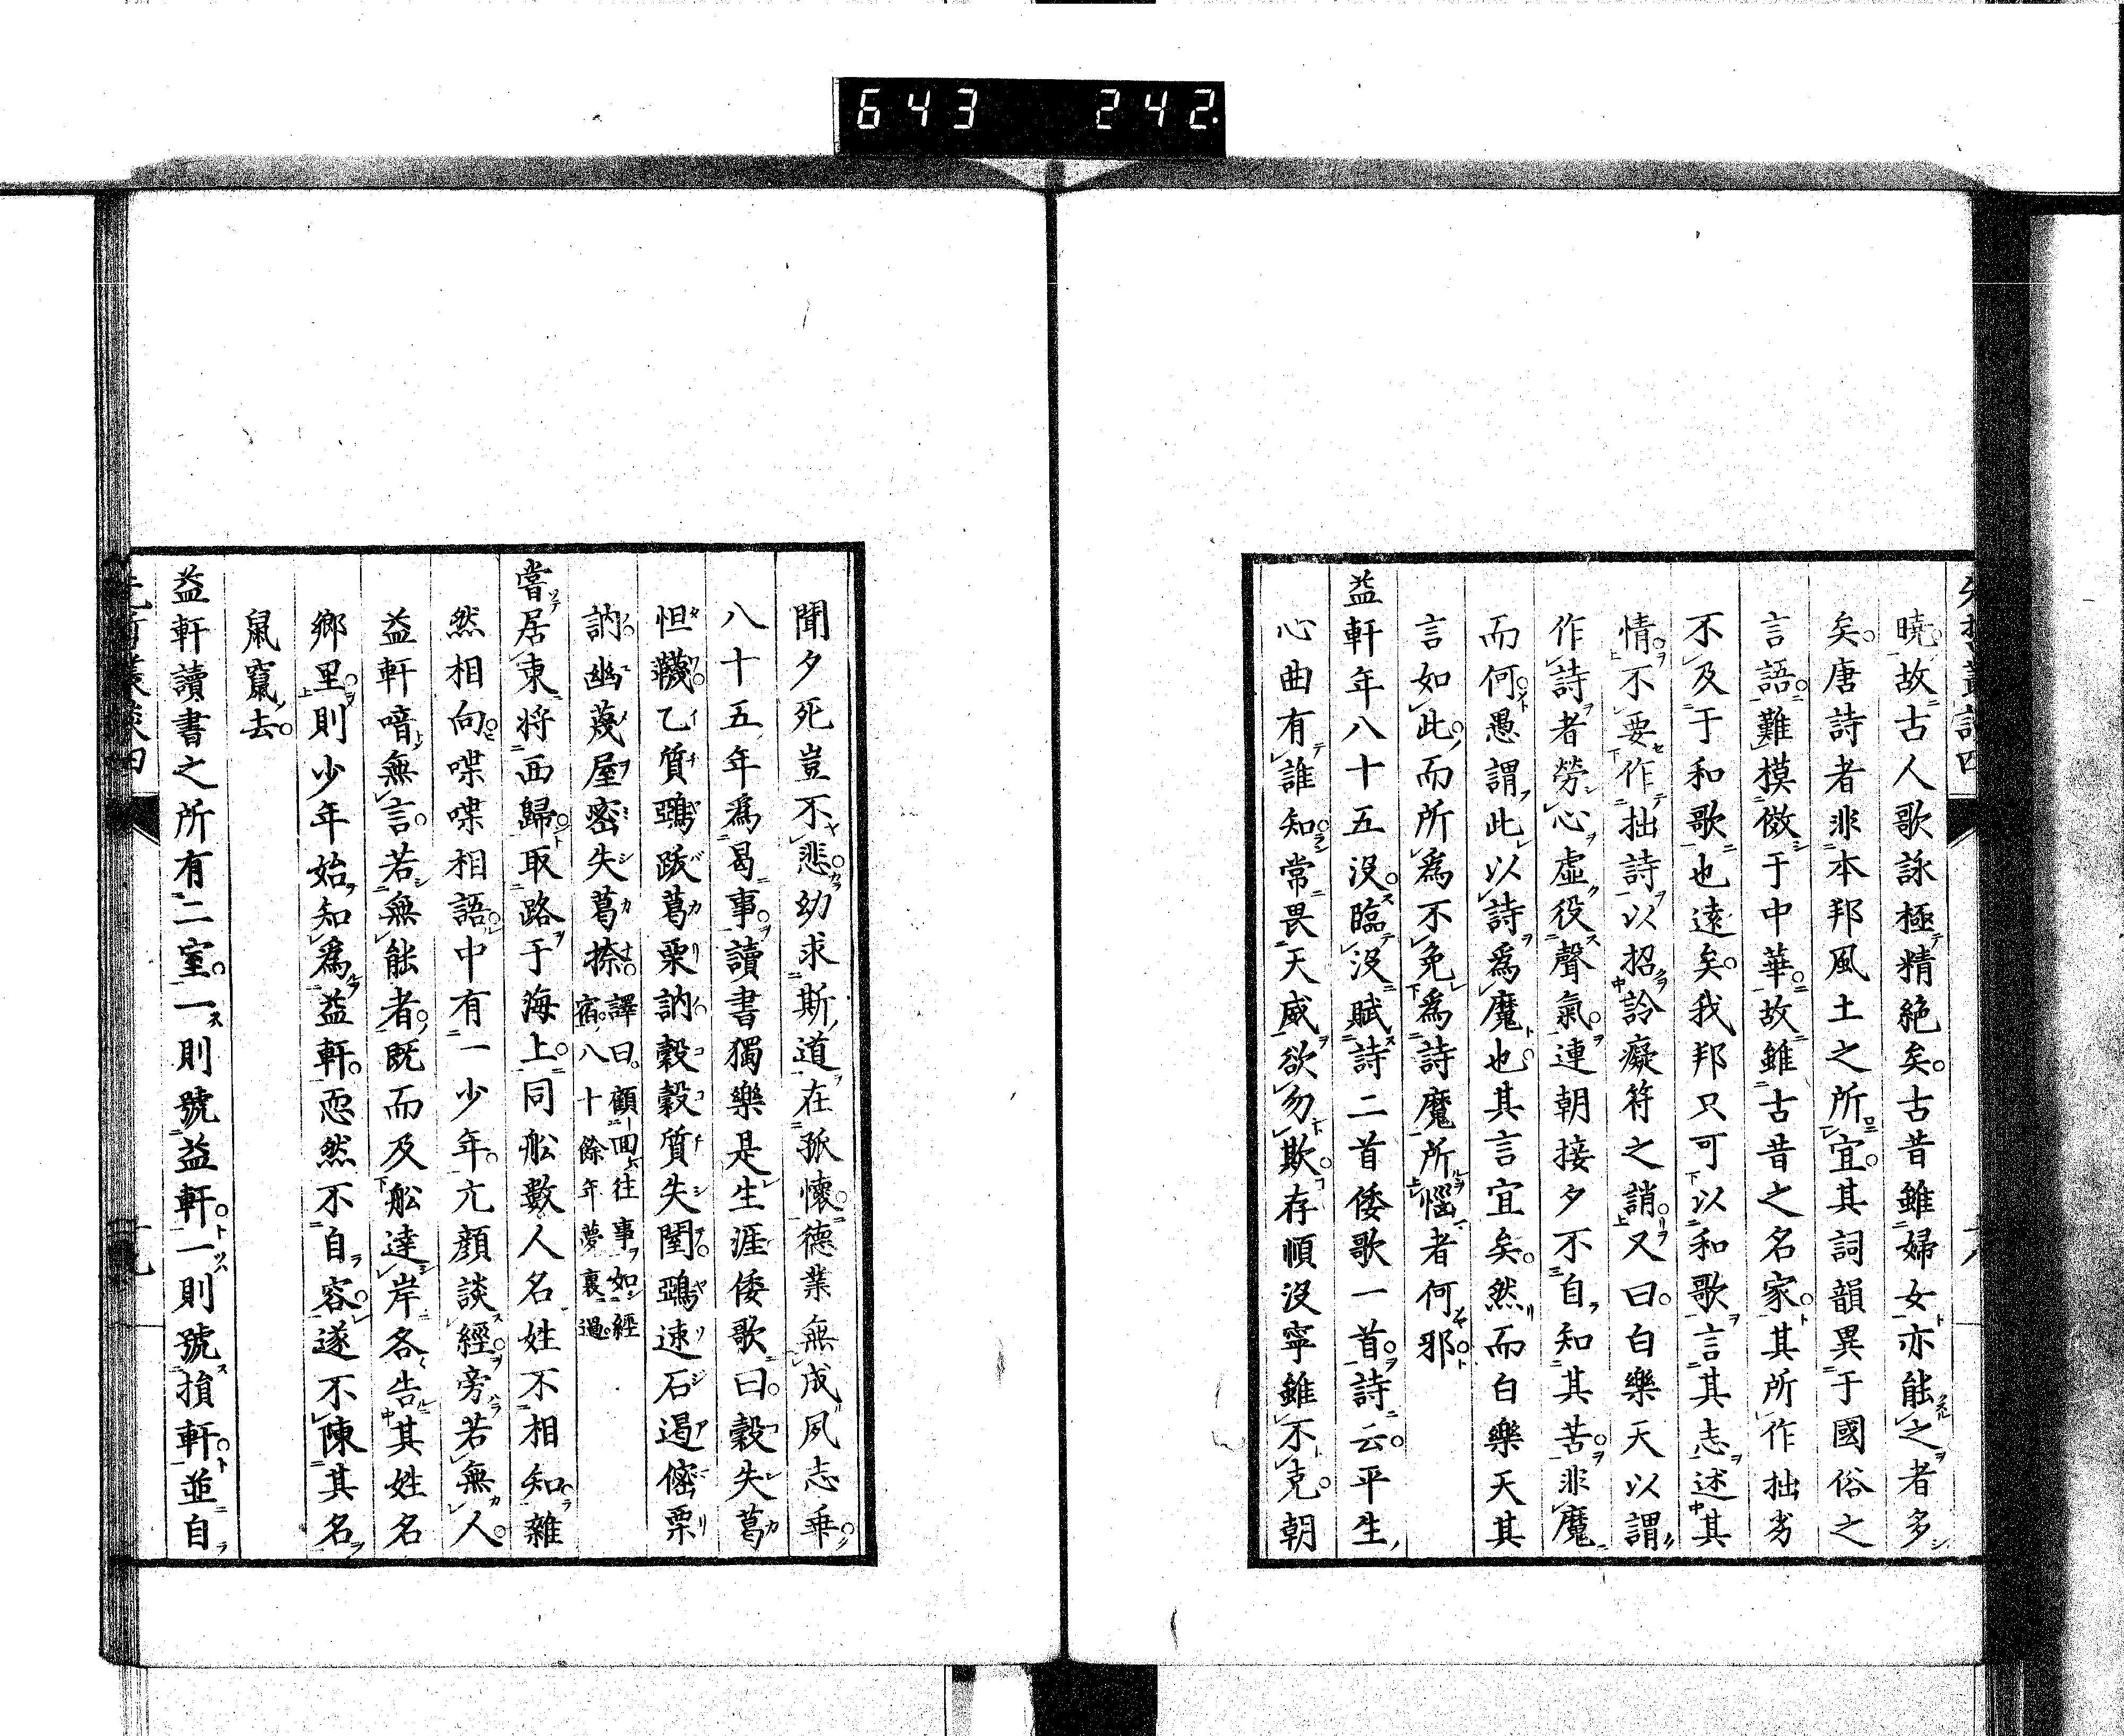 643 242
曉故古人歌詠極精絶矣古昔雖婦女亦能之者多
矣唐詩者非本邦風土之所宜其詞韻異于國俗之
言語難摸倣于中華故雖古昔之名家其所作拙劣
不及于和歌也遠矣我邦只可以和歌言其志述其
情不要作拙詩以招詅癡符之誚又曰白樂天以謂
作詩者勞心虛役聲氣連朝接夕不自知其苦非魔
而何愚謂此以詩爲魔也其言宜矣然而白樂天其
言如此而所爲不免爲詩魔所惱者何邪
益軒年八十五沒臨沒賦詩二首倭歌一首詩云平生
心曲有誰知常畏天威欲勿欺存順沒寧雖不克朝
聞夕死豈不悲幼求斯道在孤懷德業無成夙志乖
八十五年爲曷事讀書獨樂是生涯倭歌曰穀失葛
怛韈乙質鵶跋葛栗訥穀穀質失闥鵶速石遏僿栗
訥幽蔑屋密失葛捺譯曰顧回往事如經宿八十餘年夢裏過
嘗居東將西歸取路于海上同舩數人名姓不相知雜
然相向喋喋相語中有一少年亢顏談經旁若無人
益軒喑無言若無能者既而及舩達岸各告其姓名
鄉里則少年始知爲益軒恧然不自容遂不陳其名
鼠竄去
益軒讀書之所有二室一則號益軒一則號損軒並自